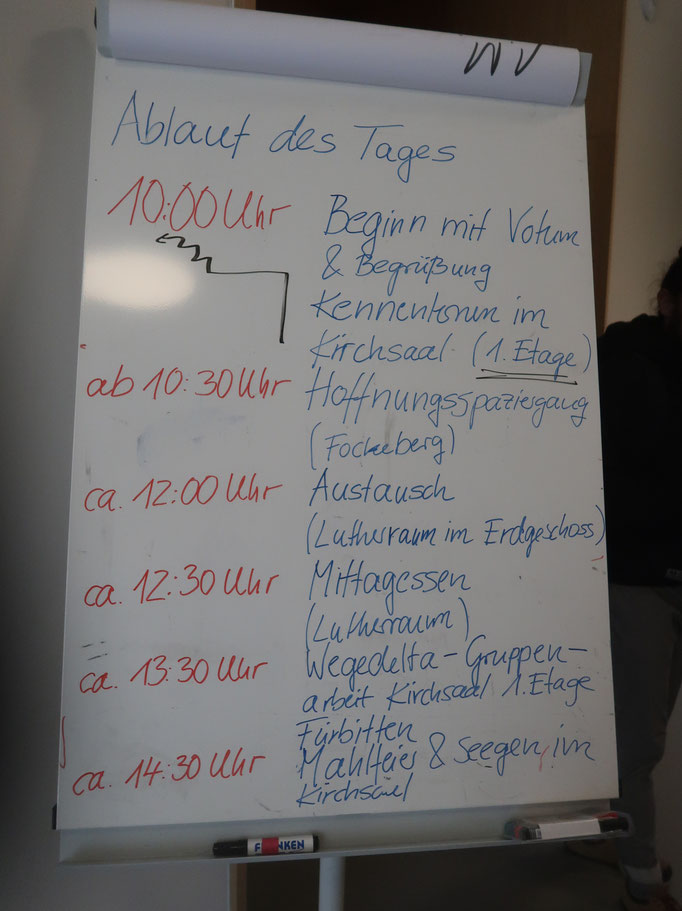 Ablauf des Tages
10:00 Uhr Beginn mit Votum
& Begrüßung
Kennenlernen im
Kirchsaal (1. Etage)
ab 10:30 Uhr Hoffnungsspaziergang
(Fockeberg)
ca. 12:00 Uhr Austausch
(Lutherraum im Erdgeschoss)
ca. 12:30 Uhr Mittagessen
(Lutherraum)
ca. 13:30 Uhr Wegedelta-Gruppen-
arbeit Kirchsaal 1. Etage
Fürbitten
ca. 14:30 Uhr Mahlfeier & Seegen, im
Kirchsaal